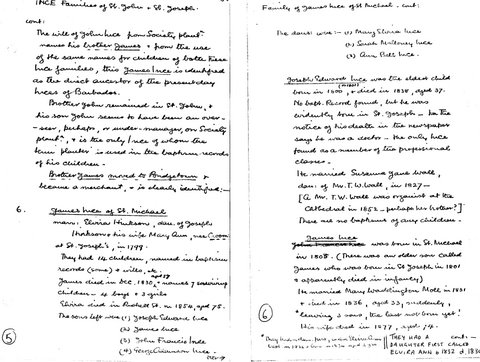 INCE Families of St. John & St. Joseph.
cont:
The will of John Ince from Society plantn
names his brother James & from the use
of the same names for children of both these
Ince families, this James Ince is identified
as the direct ancestor of the present day
Inces of Barbados.
Brother John remained in St. John, &
his son John seems to have been an over-
-seer, perhaps, or under-manager, on Society
plantn, & is the only Ince of whom the
term 'planter' is used in the baptism records
of his children.
Brother James moved to Bridgetown &
became a merchant, & is clearly identified:-
6. James Ince of St. Michael
marr. Elvira Hinkson, dau. of Joseph
Hinkson & his wife Mary Ann, nee
at St. Joseph's, in 1799.
They had 14 children, named in baptism
records (some) & wills, etc.
James died in Dec. 1830, & names 7 surviving
children - 4 boys & 3 girls
Elvira died in Rockett St. in 1854, aged 75.
The sons left were (1) Joseph Edward Ince
(2) James Ince
(3) John Francis Ince
(4) George Ince
5
Family of James Ince of St. Michael. cont:
The daurs were :- (1) Mary Elvira Ince
(2) Sarah Ince
(3) Ann Ince
Joseph Edward Ince was the eldest child
born in 1800, & died in 1838, aged 37.
No bapt. Record found, but he was
evidently born in St. Joseph - the
notice of his death in the newspaper
says he was a doctor - the only Ince
found as a member of the professional
classes.
He married Susanna Jane Wall,
dau: of Mr. T. W. Wall, in 1827 -
[Q Mr. T. W. Wall was organist at the
Cathedral in 1852 - perhaps his brother?]
There are no baptisms of any children.
James Ince
was born in St. Michael
in 1808. (There was an older son called
James who was born in St Joseph in 1801
& apparently died in infancy)
He married Mary Waddington Moll in 1831
& died in 1836, aged 33, suddenly,
leaving 3 sons, the last not born yet!
His wife died in 1877, aged 74.
6
THEY HAD A cont:-
DAUGHTER FIRST CALLED
ELVIRA B 1832 d. 183